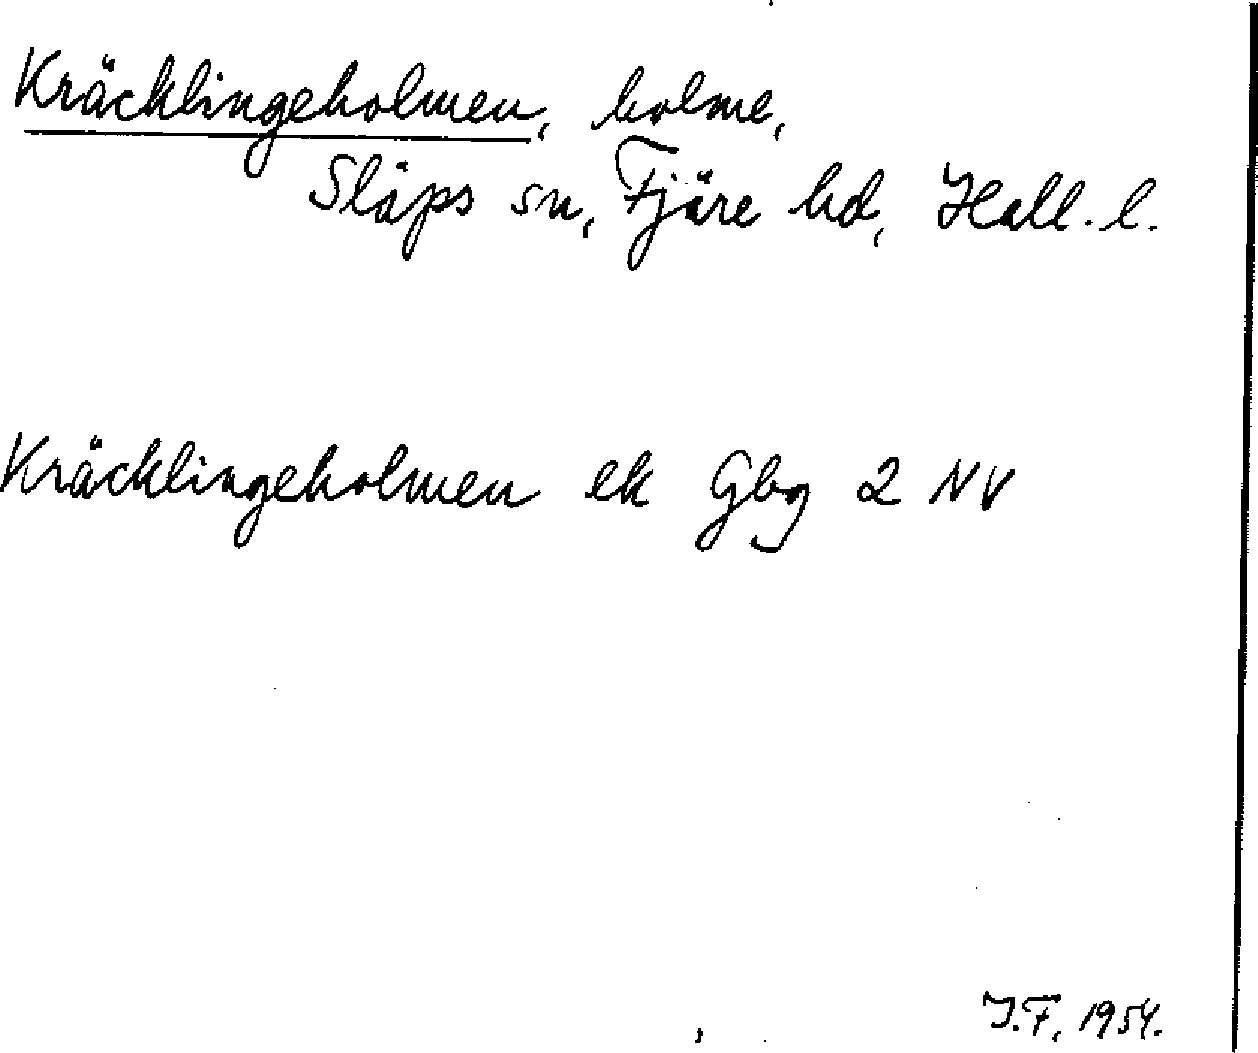 Kräcklingeholmen, holme,
Släps sn, Fjäre hd, Hall. l.
Kräcklingeholmen ek Gbg 2 NV
J.F, 1954.